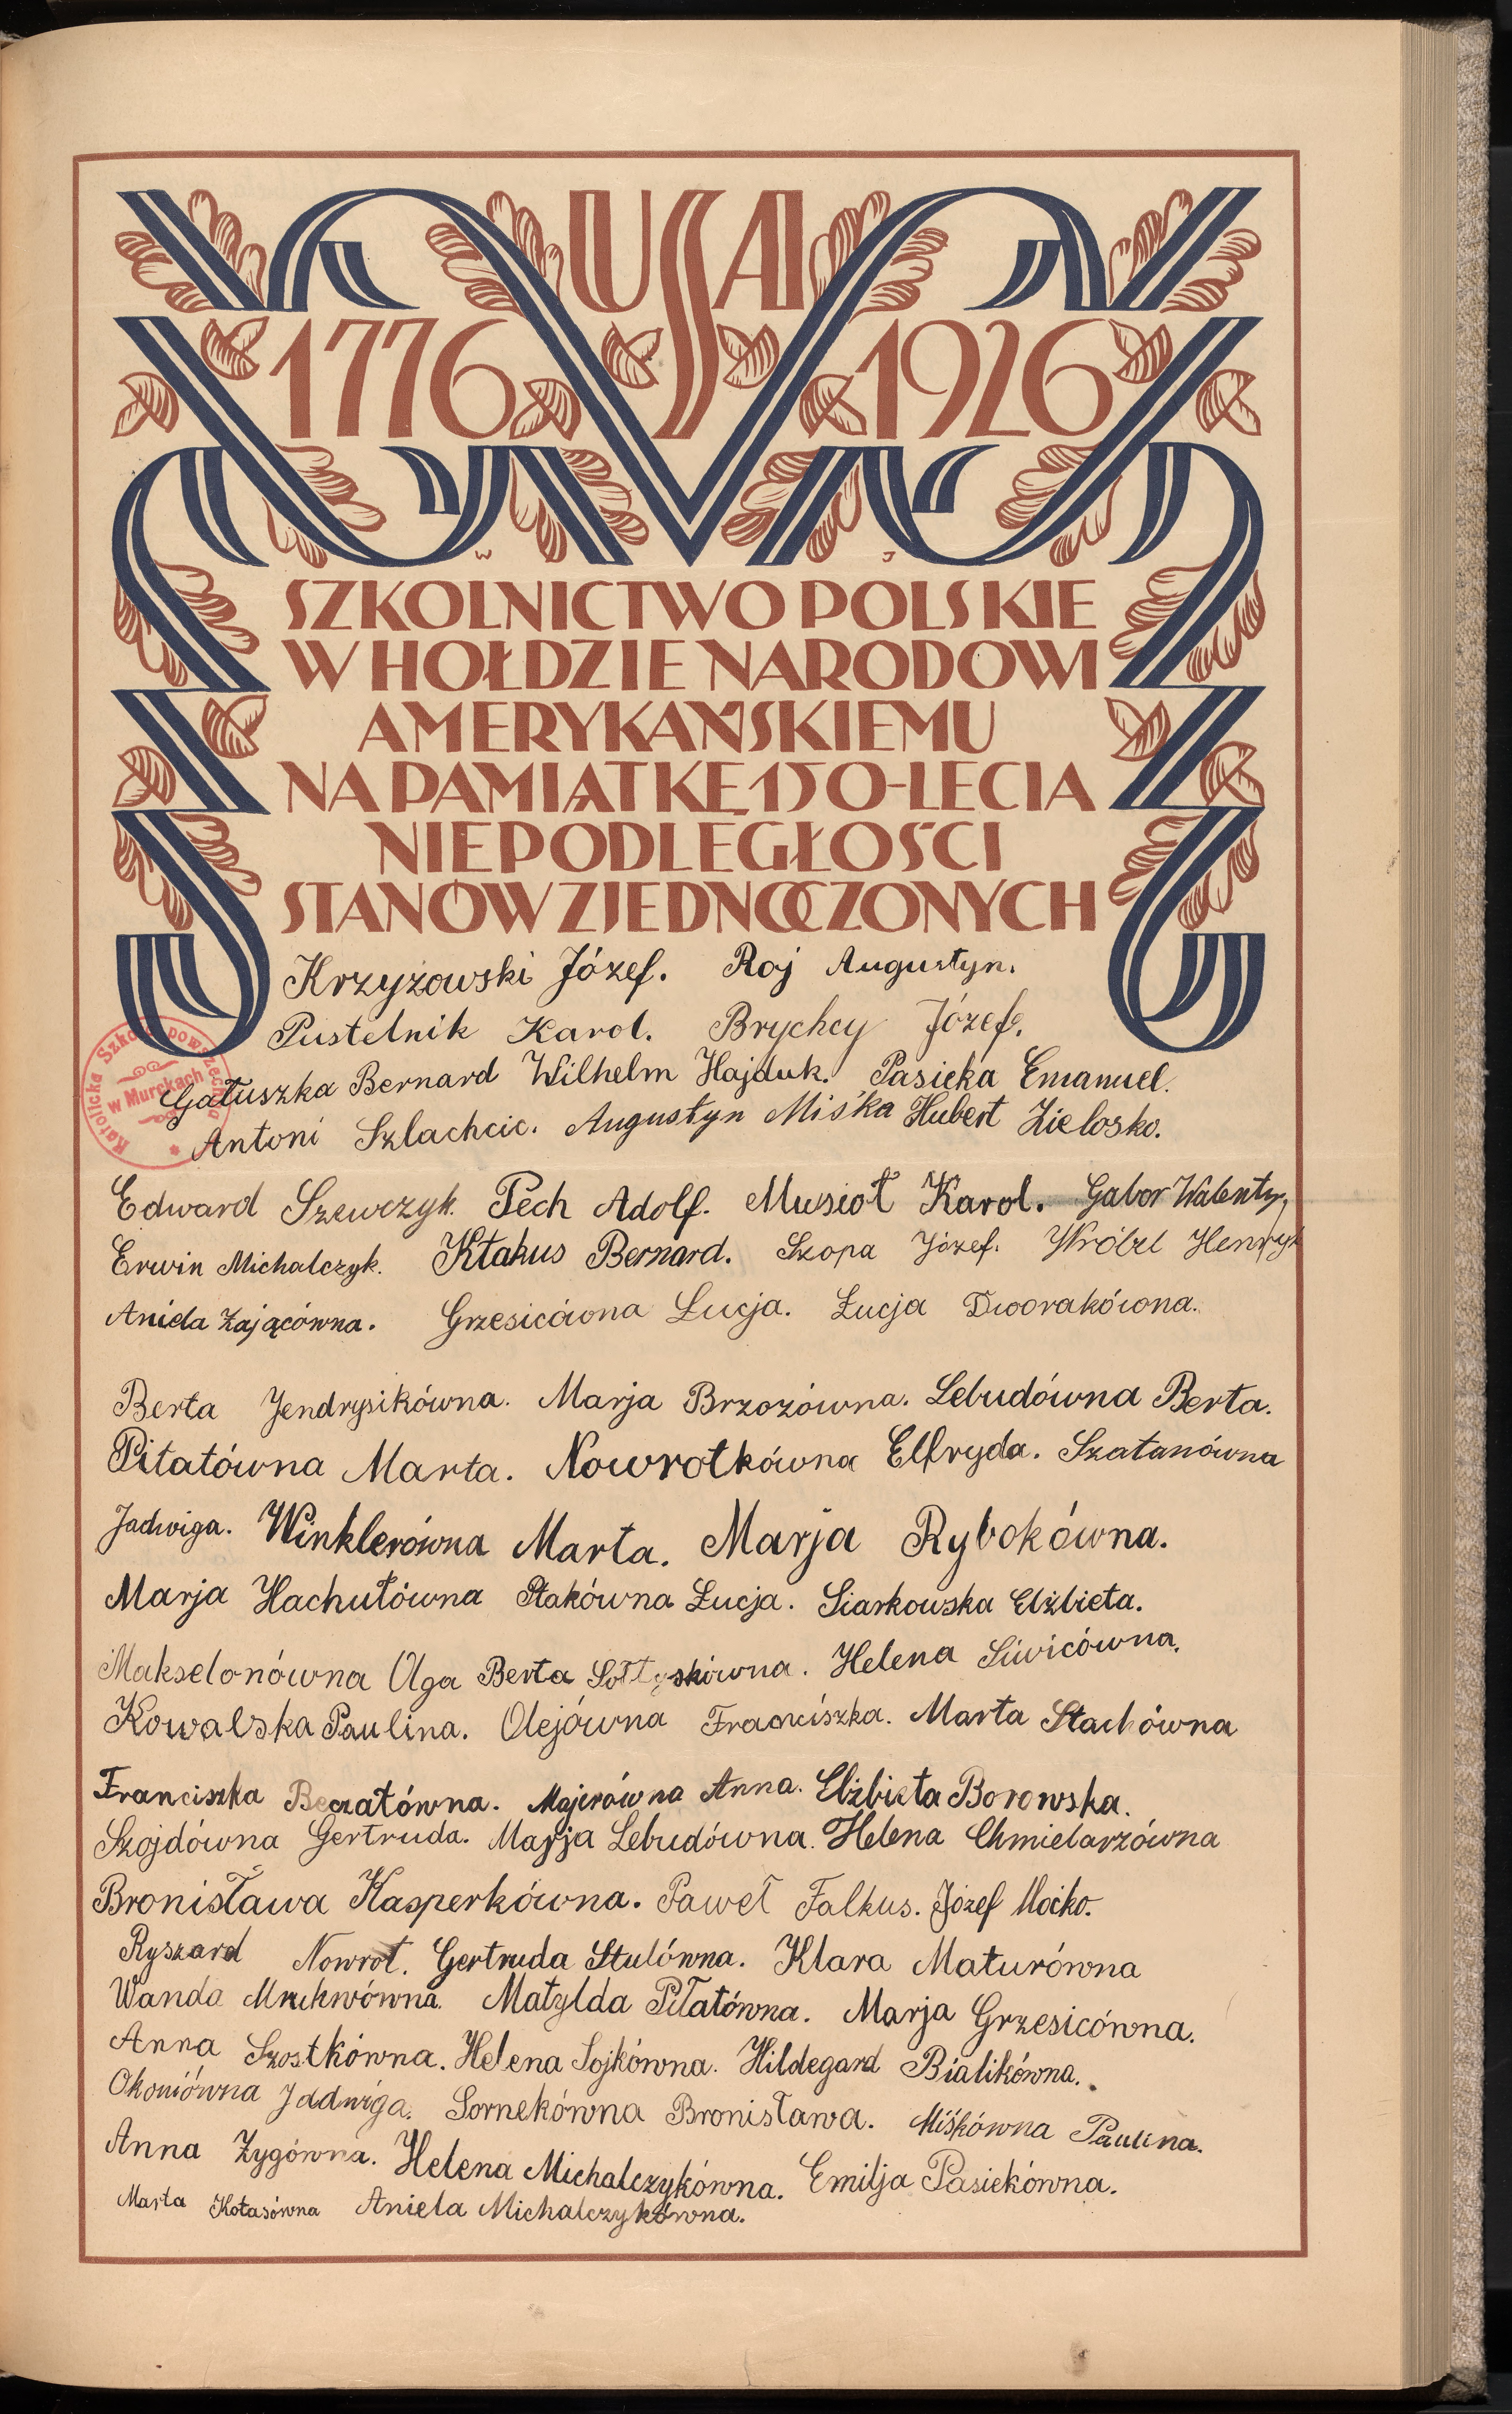 USA
1776 1926
W J
SZKOLNICTWO POLSKIE
W HOŁDZIE NARODOWI
AMERYKAŃSKIEMU
NA PAMIĄTKĘ 150-LECIA
NIEPODLEGŁOŚCI
STANÓW ZJEDNOCZONYCH
Krzyżowski Józef. Roj Augustyn.
Pustelnik Karol. Brychcy Józef.
Katolicka Szkoła powszechna
w Murckach
Gałuszka Bernard Wilhelm Hajduk. Pasieka Emanuel.
Antoni Szlachcic. Augustyn Miśka Hubert Zielosko.
Edward Szewczyk. Pech Adolf. Musioł Karol. Gabor Walenty,
Erwin Michalczyk. Kłakus Bernard. Szopa Józef. Wróbel Henryk
Aniela Zającówna. Grzesicówna Łucja. Łucja Dworakówna.
Berta Jendrysikówna. Marja Brzozówna. Lebudówna Berta.
Piłatówna Marta. Nowrotkówna Elfryda. Szatanówna
Jadwiga. Winklerówna Marta. Marja Rybokówna.
Marja Hachułówna Ptakówna Łucja. Siarkowska Elżbieta.
Makselonówna Olga Berta Sołtyskówna. Helena Siwicówna.
Kowalska Paulina. Olejówna Franciszka. Marta Stachówna
Franciszka Beczatówna. Majerówna Anna. Elżbieta Borowska.
Szojdówna Gertruda. Marja Lebudówna. Helena Chmielarzówna
Bronisława Kasperkówna. Paweł Falkus. Józef Moćko.
Ryszard Nowrot. Gertruda Stulówna. Klara Maturówna
Wanda Mrukwówna. Matylda Piłatówna. Marja Grzesicówna.
Anna Szostkówna. Helena Sojkówna. Hildegard Bialikówna.
Okoniówna Jadwiga. Sornekówna Bronisława. Miśkówna Paulina.
Anna Zygówna. Helena Michalczykówna. Emilja Pasiekówna.
Marta Kołasówna Aniela Michalczykówna.